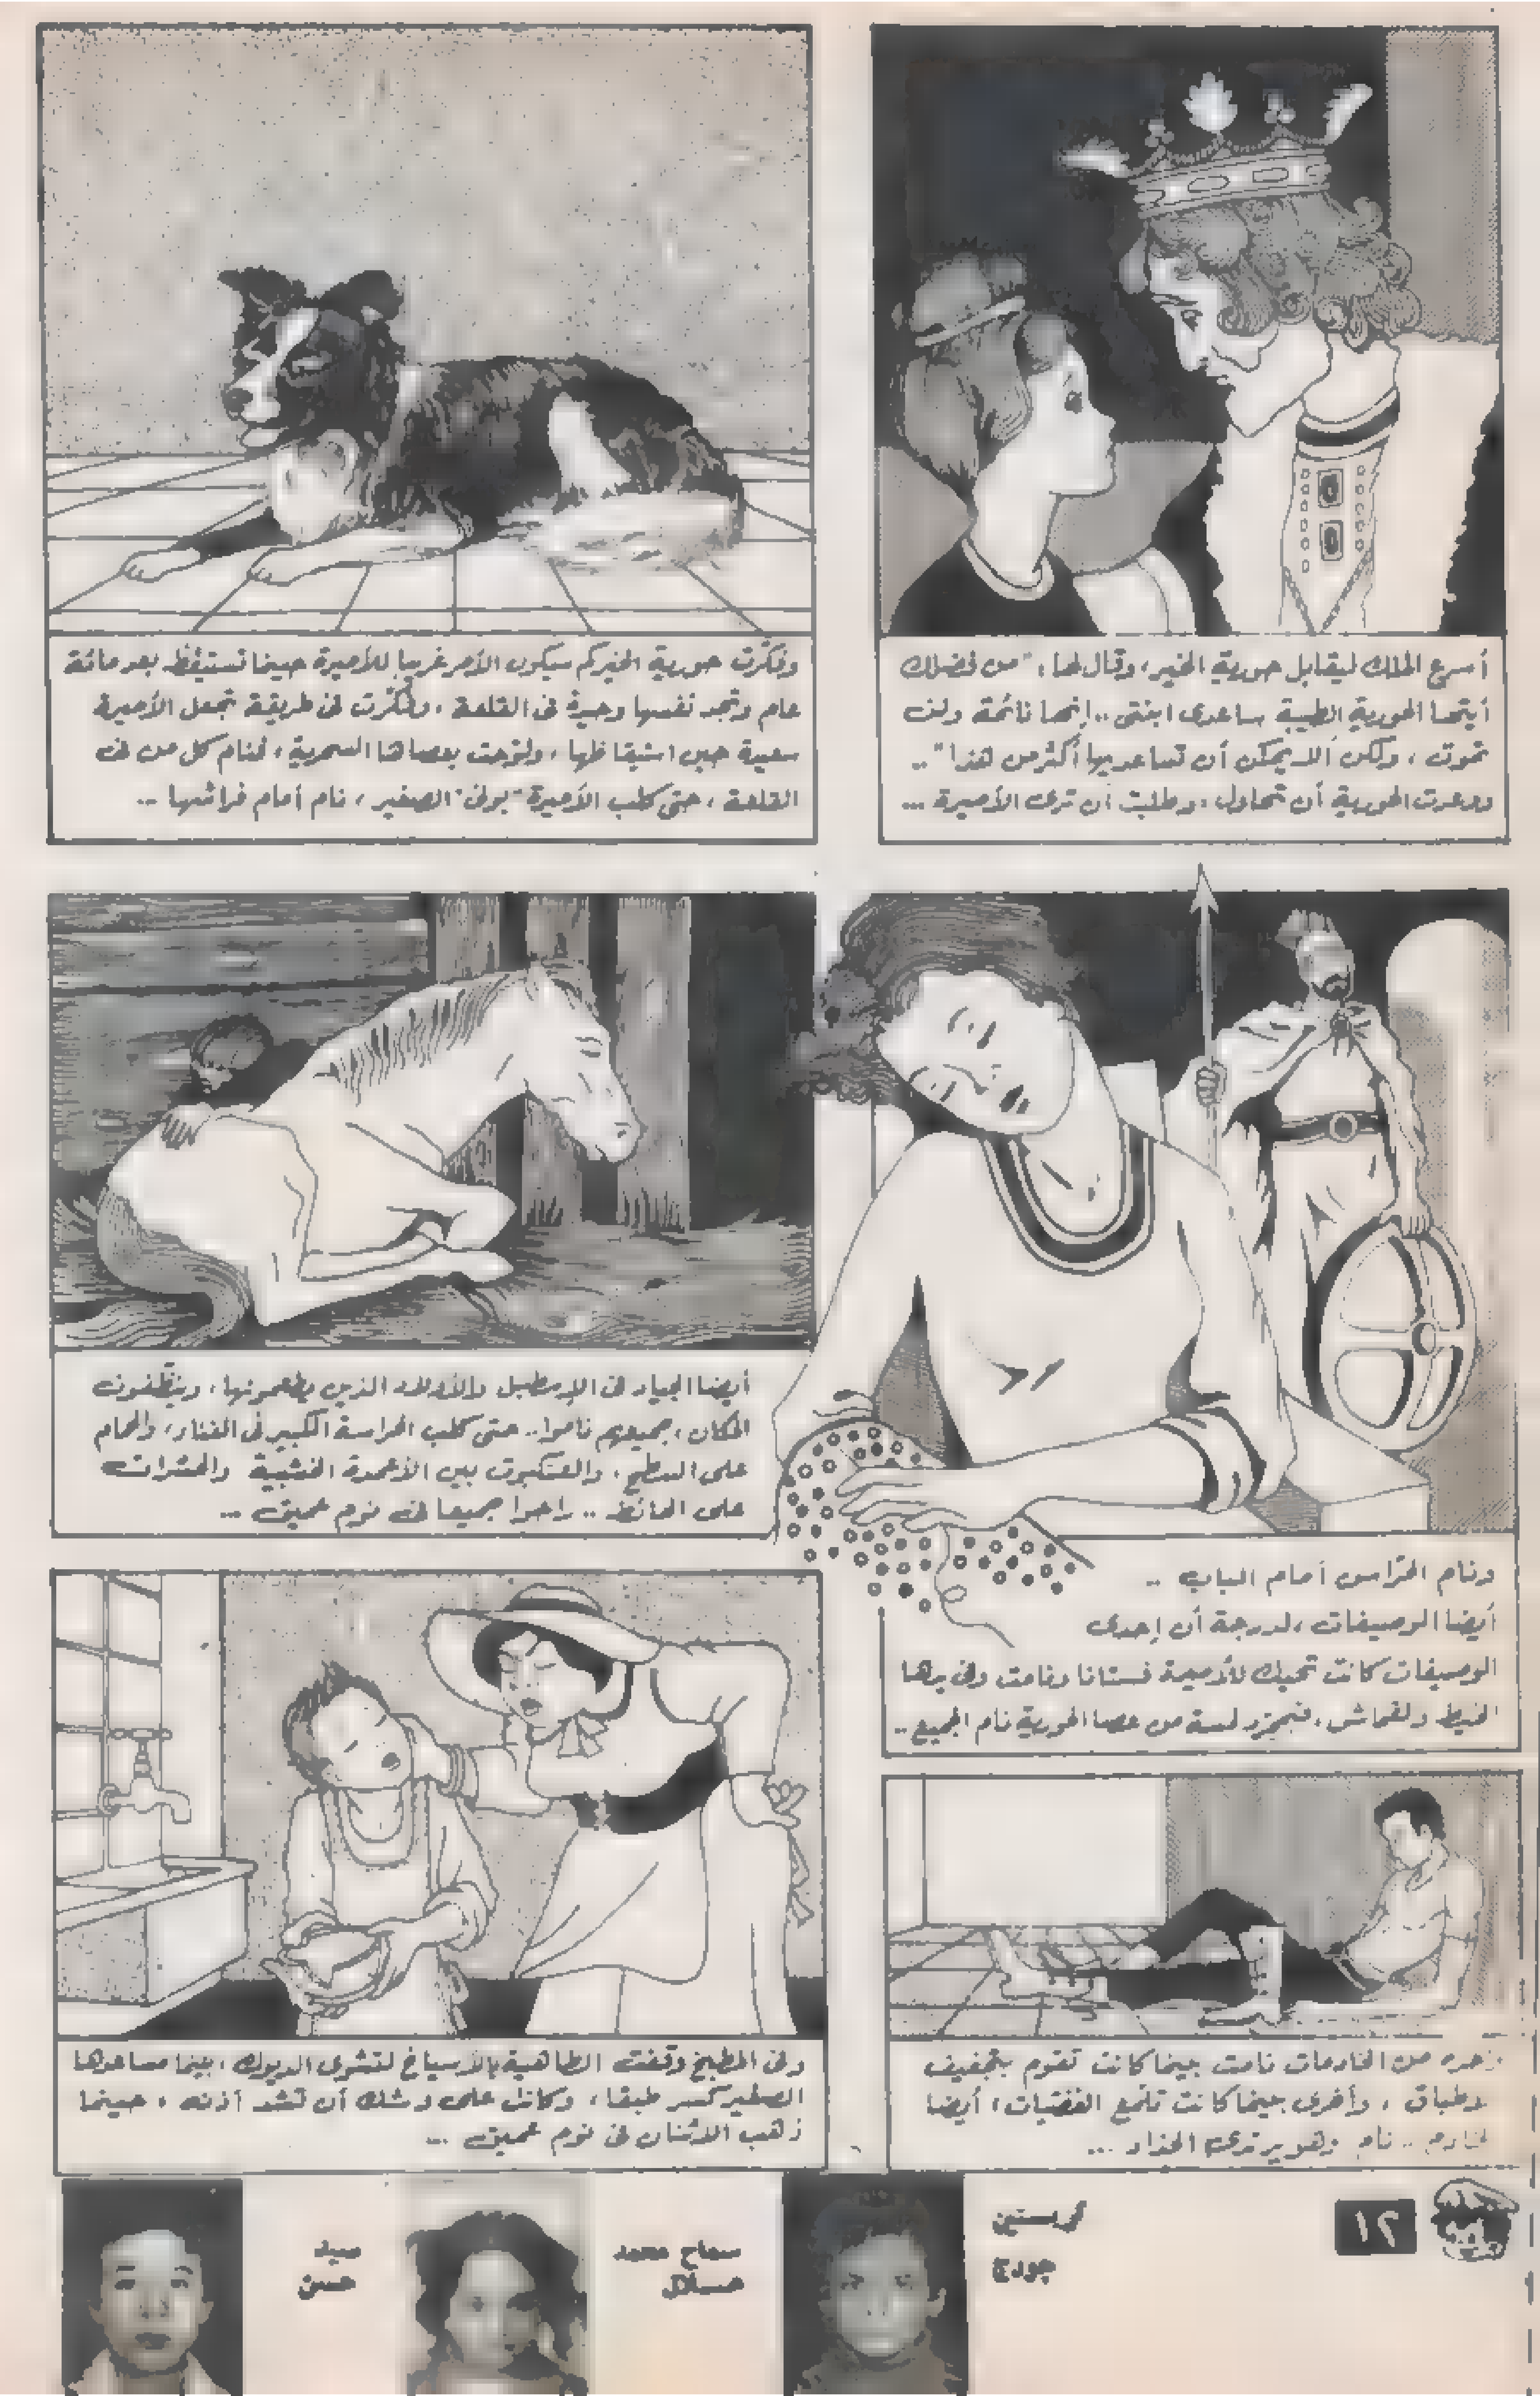 أسرع الملك ليقابل حورية الخير، وقال لها: "من فضلك
أيتها الحورية الطيبة ساعدى ابنتى .. إنها نائمة ولن
تموت ، ولكن ألا يمكن أن تساعديها أكثر من هذا" ..
ووعدت الحورية أن تحاول، وطلبت أن ترى الأميرة ...
وفكّرت حورية الخير كم سيكون الأمر غريبا للأميرة حينما تستيقظ بعد مائة
عام وتجد نفسها وحيدة فى القلعة ، وفكّرت فى طريقة تجعل الأميرة
سعيدة حين استيقاظها ، ولوّحت بعصاها السحرية ، فنام كل من فى
القلعة ، حتى كلب الأميرة "بونى" الصغير ، نام أمام فراشها ..
ونام الحرّاس أمام الباب ..
أيضا الوصيفات ، لدرجة أن إحدى
الوصيفات كانت تحيك للأميرة فستانا ونامت وفى يدها
الخيط والقماش ، فبمجرد لمسة من عصا الحورية نام الجميع ..
أيضا الجياد فى الإسطبل والأولاد الذين يطعمونها ، وينظّفون
المكان ، جميعهم ناموا .. حتى كلب الحراسة الكبير فى الفناء ، والحمام
على السطح ، والعنكبوت بين الأعمدة الخشبية والحشرات
على الحائط .. راحوا جميعا فى نوم عميق ...
واحدة من الخادمات نامت بينما كانت تقوم بتجفيف
الأطباق ، وأخرى بينما كانت تلمّع الفضيات ، أيضا
الخادم .. نام وهو يرتدى الحذاء ...
وفى المطبخ وقفت الطاهية بالأسياخ لتشوى الديوك ، بينما مساعدها
الصغير كسر طبقا ، وكانت على وشك أن تشد أذنه ، حينما
ذهب الاثنان فى نوم عميق ...
١٢
كرستين
جورج
سماح محمد
هلال
سيد
حسن